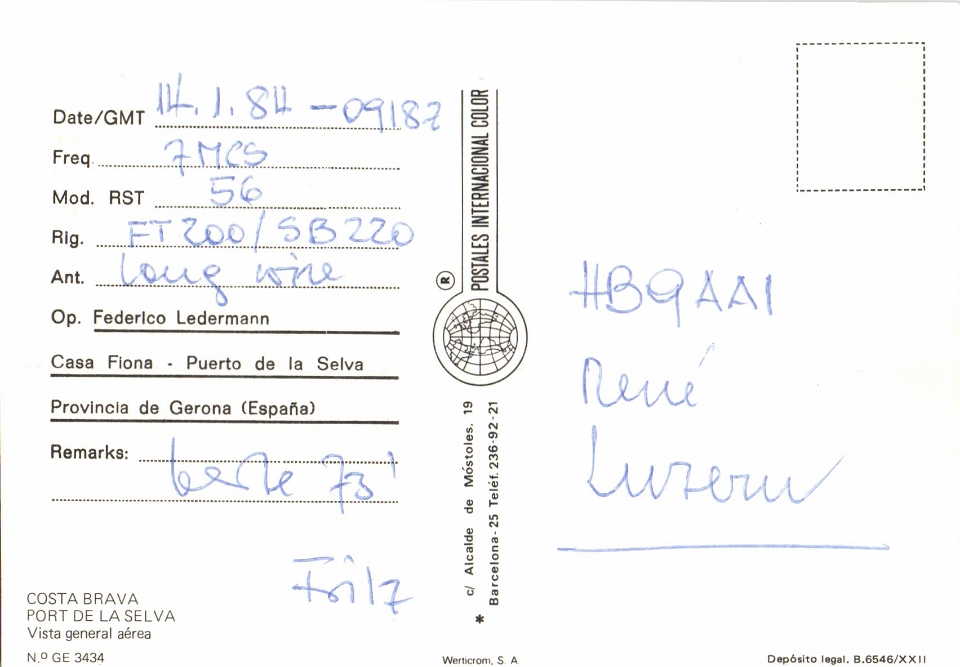 Date/GMT 14.1.84 - 0918Z
Freq. 7 MCS
Mod. RST 56
Rig. FT 200 / SB 220
Ant. long wire
Op. Federico Ledermann
Casa Fiona - Puerto de la Selva
Provincia de Gerona (España)
Remarks: beste 73'
Fritz
COSTA BRAVA
PORT DE LA SELVA
Vista general aérea
N.º GE 3434
POSTALES INTERNACIONAL COLOR
®
c/ Alcalde de Móstoles, 19
Barcelona-25 Teléf. 236-92-21
*
Werticrom, S. A.
HB9AAI
René
Luzern
Depósito legal. B.6546/XXII